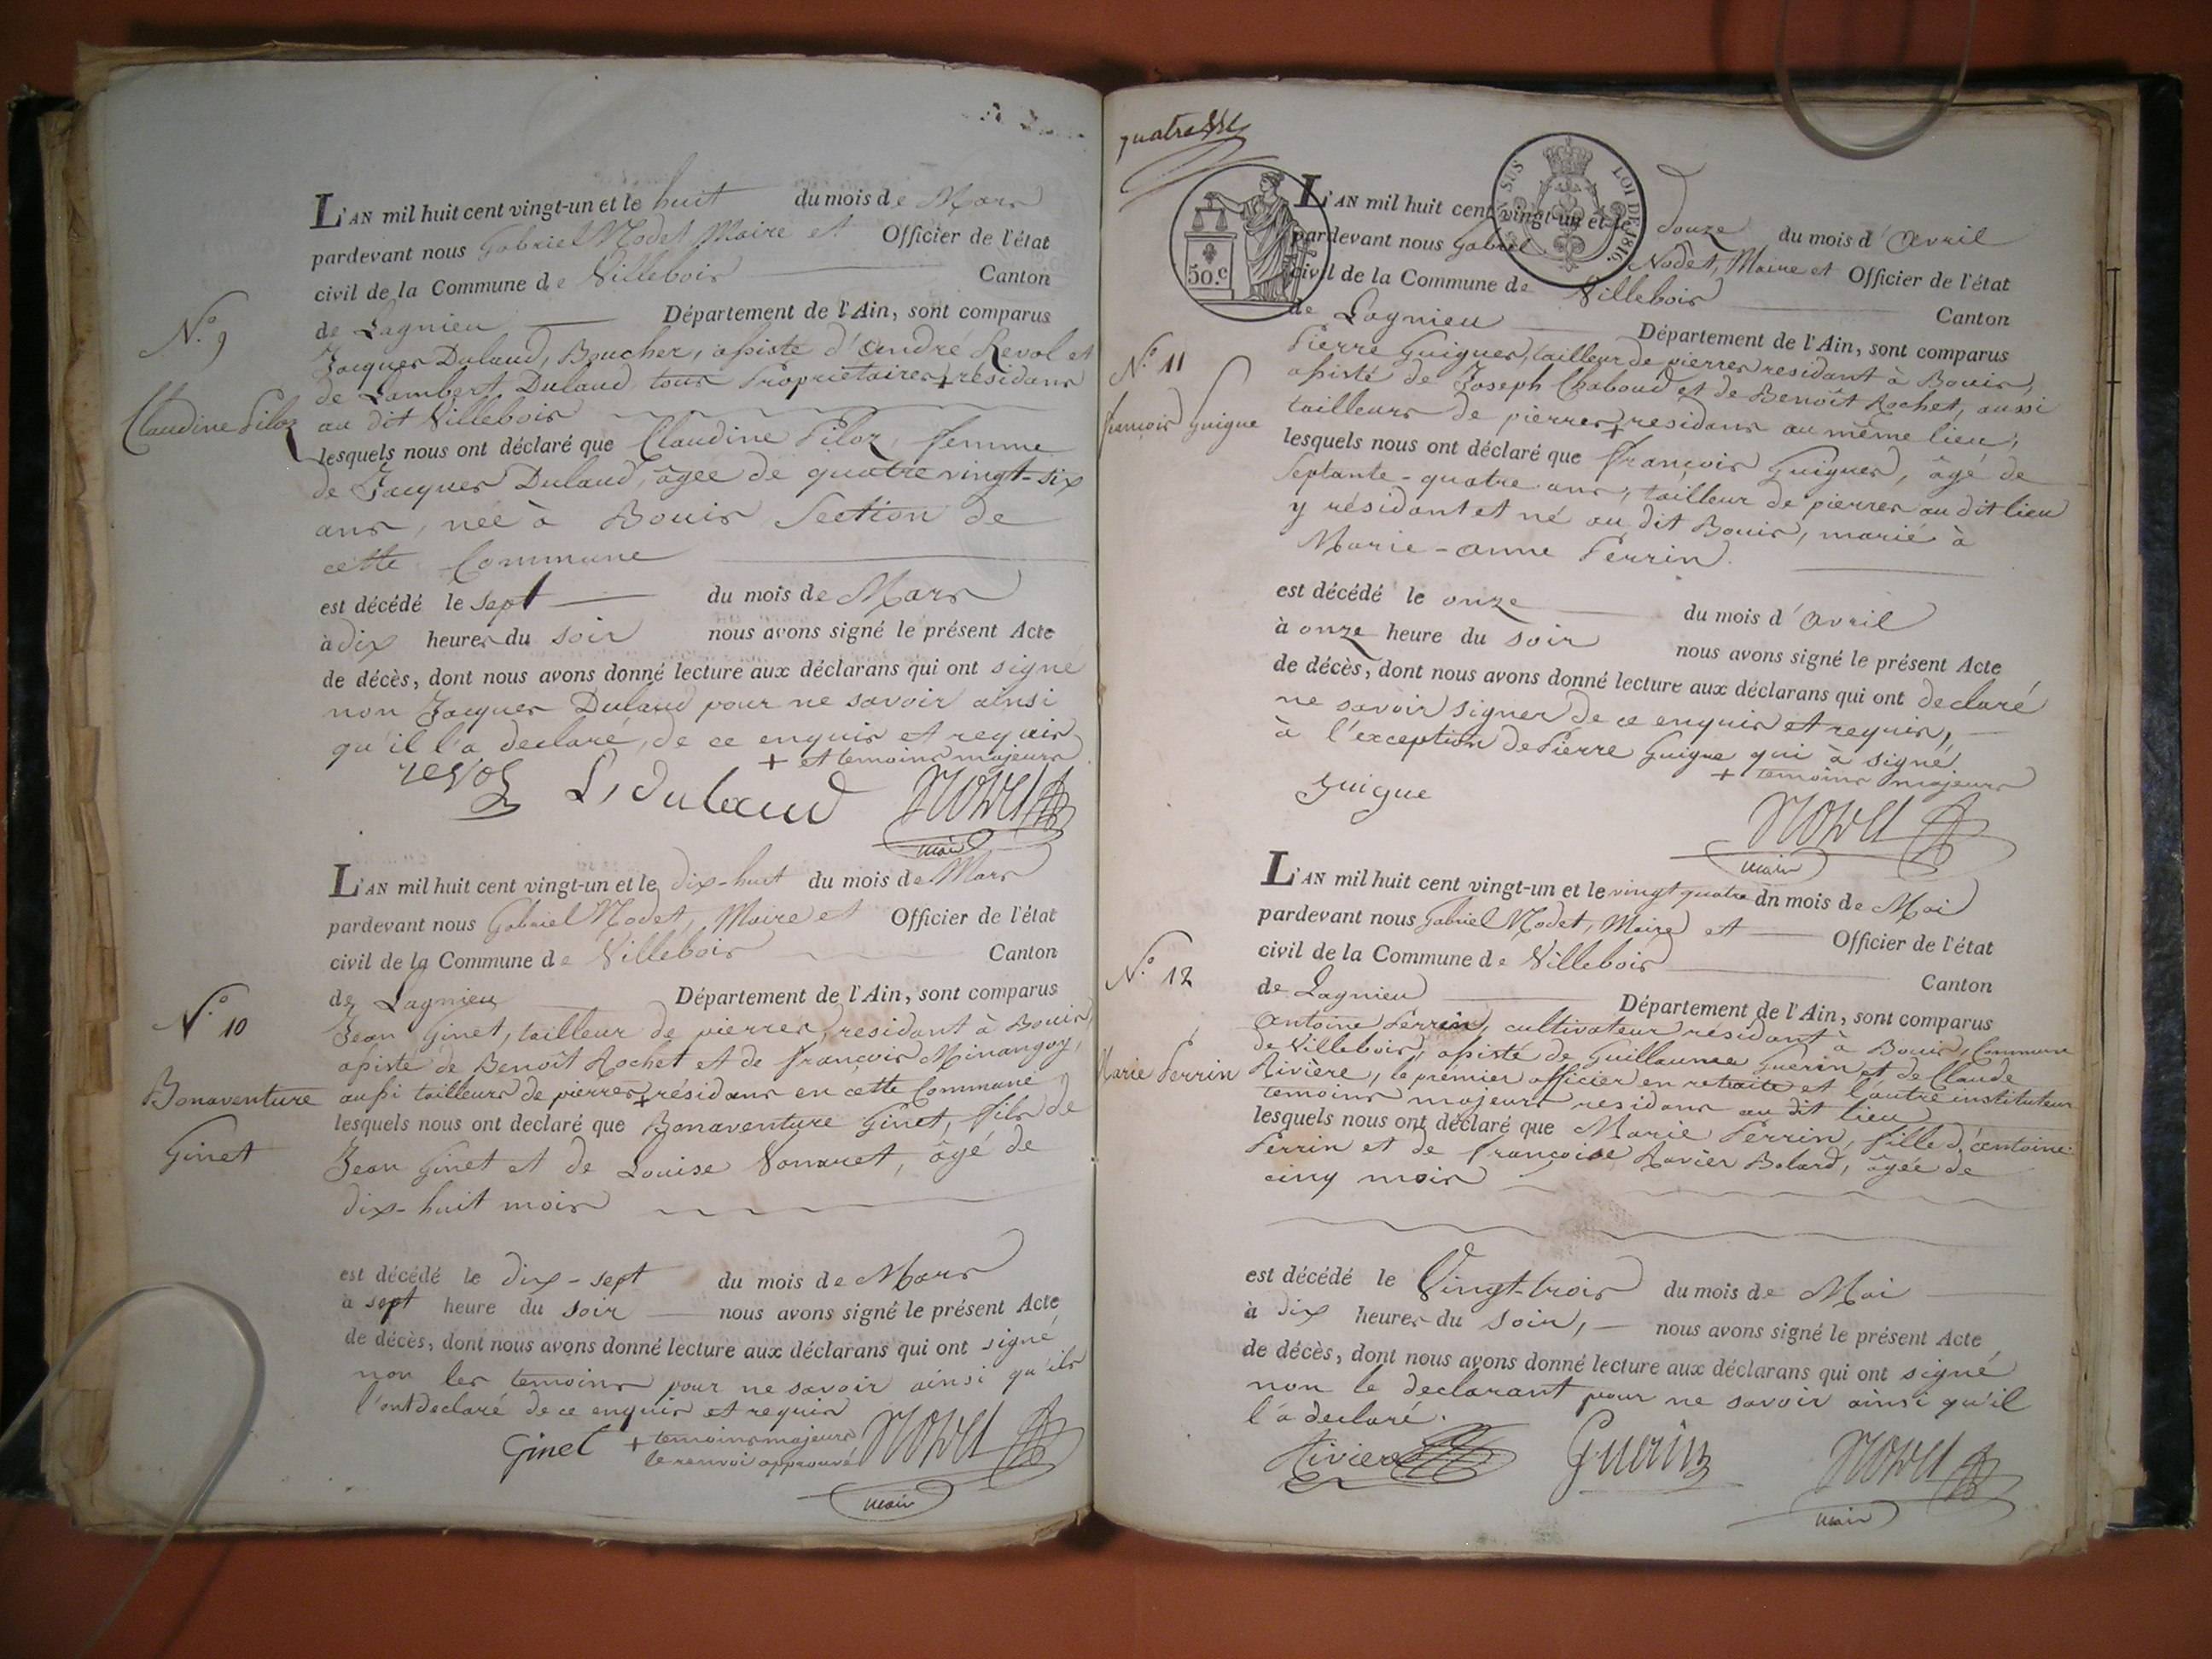 L'AN mil huit cent vingt-un et le huit du mois de Mars
pardevant nous Gabriel Nodet Maire et Officier de l'état
civil de la Commune de Villebois Canton
de Lagnieu Département de l'Ain, sont comparus
N.° 9
Jacques Dulaud, Boucher, assisté d'André Revol et
de Lambert Dulaud tous Propriétaires + résidans
Claudine Piloz
au dit Villebois
lesquels nous ont déclaré que Claudine Piloz, femme
de Jacques Dulaud, âgée de quatre vingt-six
ans, née à Bouis Section de
cette Commune
est décédé le sept du mois de Mars
à dix heures du soir nous avons signé le présent Acte
de décès, dont nous avons donné lecture aux déclarans qui ont signé
non Jacques Dulaud pour ne savoir ainsi
qu'il l'a declaré, de ce enquis et requis
+ et temoins majeurs
revol L, dulaud Nodet
maire
L'AN mil huit cent vingt-un et le dix-huit du mois de Mars
pardevant nous Gabriel Nodet, Maire et Officier de l'état
civil de la Commune de Villebois Canton
de Lagnieu Département de l'Ain, sont comparus
N.° 10
Jean Ginet, tailleur de pierres, residant à Bouis,
assisté de Benoît Rochet et de françois Minangoy,
Bonaventure
Ginet
aussi tailleurs de pierres + résidans en cette Commune
lesquels nous ont declaré que Bonaventure Ginet, fils de
Jean Ginet et de Louise Vonaret, âgé de
dix-huit mois
est décédé le dix-sept du mois de Mars
à sept heure du soir nous avons signé le présent Acte
de décès, dont nous avons donné lecture aux déclarans qui ont signé
non les temoins pour ne savoir ainsi qu'ils
l'ont declaré de ce enquis et requis
Ginet + temoins majeurs Nodet
le renvoi approuvé
maire
quatre
50.c
SUS LOI DE 1816.
L'AN mil huit cent vingt-un et le douze du mois d'Avril
pardevant nous Gabriel Nodet, Maire et Officier de l'état
civil de la Commune de Villebois Canton
de Lagnieu Département de l'Ain, sont comparus
N.° 11
Pierre Guigues, tailleur de pierres residant à Bouis,
assisté de Joseph Chaboud et de Benoît Rochet, aussi
françois Guigue
tailleurs de pierres + residans au même lieu,
lesquels nous ont déclaré que François Guigues, âgé de
Septante-quatre ans, tailleur de pierres au dit lieu
y résidant et né au dit Bouis, marié à
Marie-anne Perrin.
est décédé le onze du mois d'Avril
à onze heure du soir nous avons signé le présent Acte
de décès, dont nous avons donné lecture aux déclarans qui ont declaré
ne savoir signer de ce enquis et requis,
à l'exception de Pierre Guigue qui à signé
+ temoins majeurs
guigue
Nodet
maire
L'AN mil huit cent vingt-un et le vingt quatre du mois de Mai
pardevant nous Gabriel Nodet, Maire et Officier de l'état
civil de la Commune de Villebois Canton
N.° 12
de Lagnieu Département de l'Ain, sont comparus
Antoine Perrin, cultivateur résidant à Bouis, Commune
de Villebois, assisté de Guillaume Guerin et de Claude
Marie Perrin
Riviere, le premier officier en retraite et l'autre instituteur
temoins majeurs residans au dit lieu
lesquels nous ont déclaré que Marie Perrin, fille d'antoine
Perrin et de françoise Ravier Bolard, âgée de
cinq mois
est décédé le Vingt-trois du mois de Mai
à dix heures du soir, nous avons signé le présent Acte
de décès, dont nous avons donné lecture aux déclarans qui ont signé
non le declarant pour ne savoir ainsi qu'il
l'a declaré.
Riviere Guerin Nodet
maire